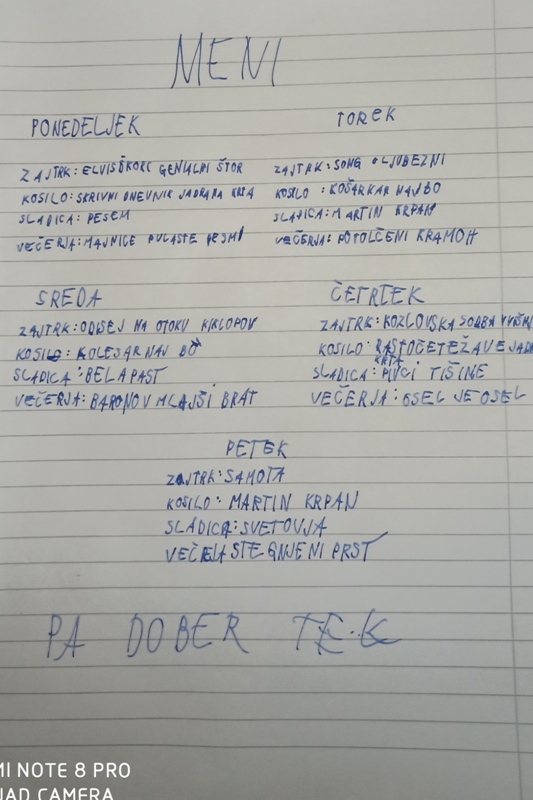 MENI
PONEDELJEK
ZAJTRK: ELVIS ŠKORC GENIALNI ŠTOR
KOSILO: SKRIVNI DNEVNIK JADRANA KRTA
SLADICA: PESEM
VEČERJA: MAJNICE
TOREK
ZAJTRK: SONG O LJUBEZNI
KOSILO: KOŠARKAR NAJ BO
SLADICA: MARTIN KRPAN
VEČERJA: POTOLČENI KRAMOH
SREDA
ZAJTRK: ODISEJ NA OTOKU KIKLOPOV
KOSILO: KOLESAR NAJ BO
SLADICA: BELA PAST
VEČERJA: BARONOV MLAJŠI BRAT
ČETRTEK
ZAJTRK: KOZLOVSKA SODBA
KOSILO: RASTOČE TEŽAVE JADR
KRTA
SLADICA: PIVCI TIŠINE
VEČERJA: OSEL JE OSEL
PETEK
ZAJTRK: SAMOTA
KOSILO: MARTIN KRPAN
SLADICA: SVETOVJA
VEČERJA STEGNJENI PRST
PA DOBER TEK
MI NOTE 8 PRO
UAD CAMERA